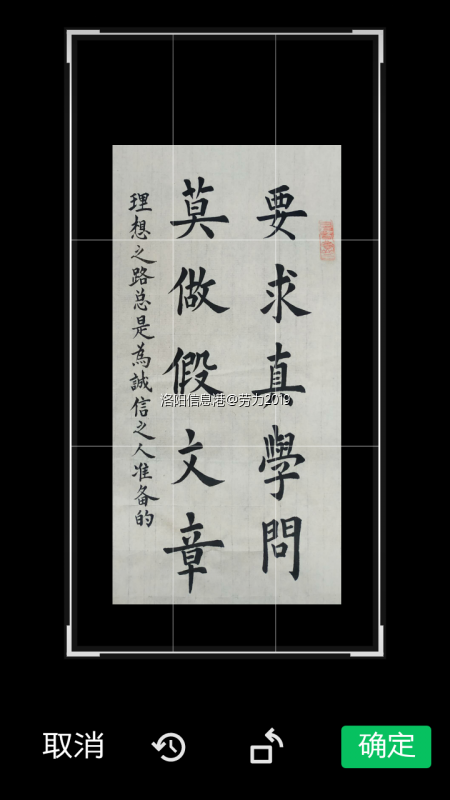 要求真學問
莫做假文章
理想之路总是為誠信之人准备的
洛阳信息港@劳力2019
取消
确定